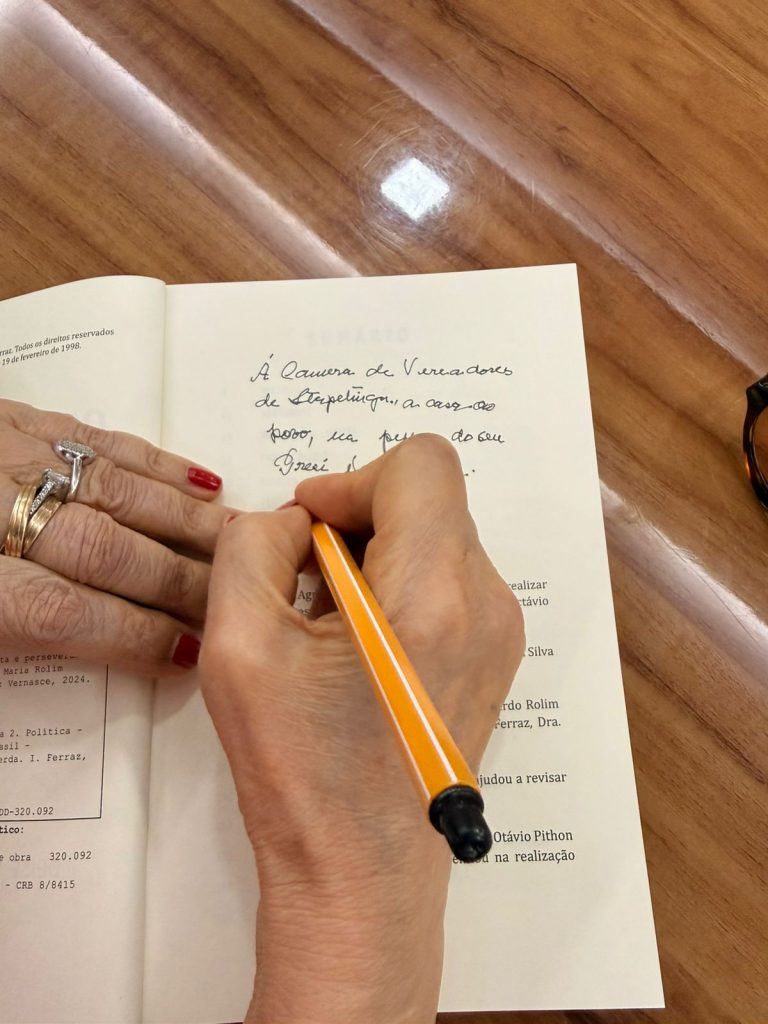 rraz. Todos os direitos reservados
19 de fevereiro de 1998.
À Camera de Vereadores
de Itapetinga, a casa do
povo, na do seu
ta e persevera
Maria Rolim
: Vernasce, 2024.
a 2. Política -
asil -
erda. I. Ferraz,
DD-320.092
tico:
e obra 320.092
- CRB 8/8415
Ag
realizar
ctávio
Silva
rdo Rolim
Ferraz, Dra.
ajudou a revisar
Otávio Pithon
ou na realização